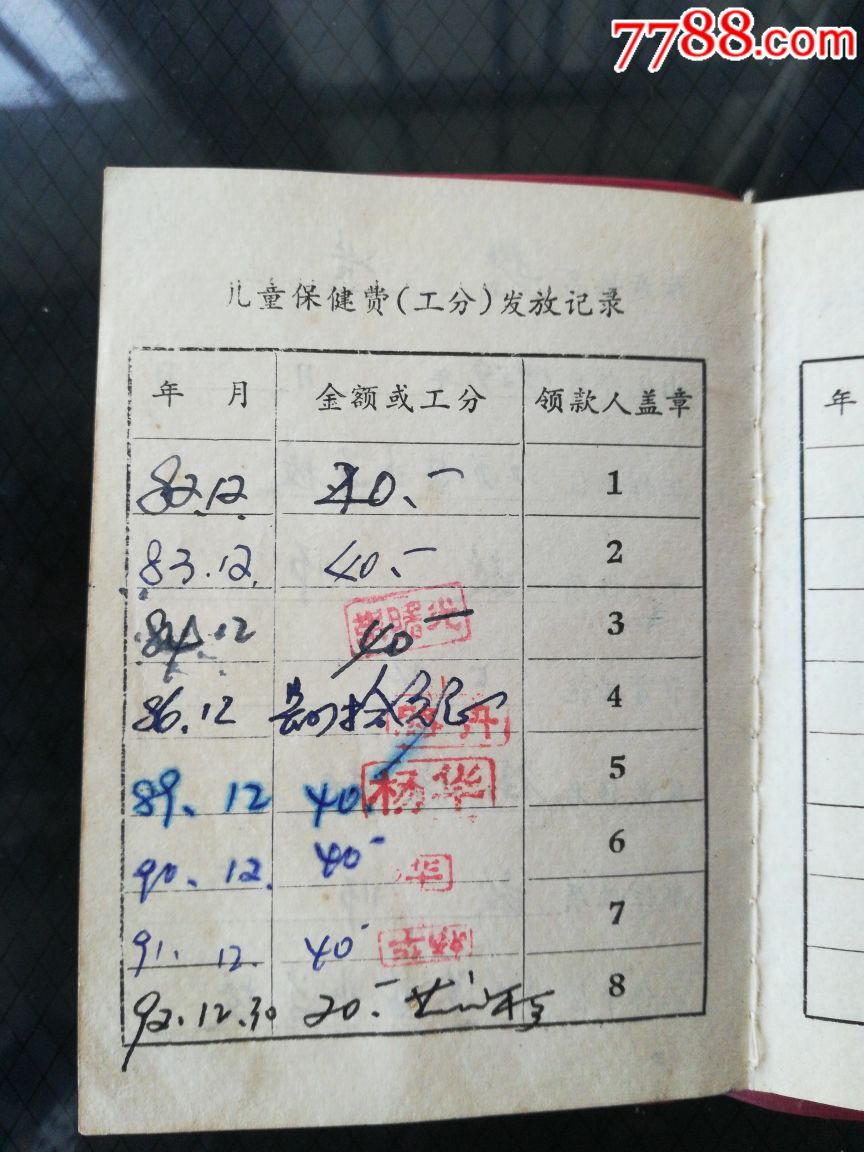 7788.com
儿童保健费(工分)发放记录
年 月 金额或工分 领款人盖章 年
82.12 40.- 1
83.12. 40.- 2
84.12 40- 3
86.12 4
89.12 40.- 杨华 5
90.12. 40- 华 6
91.12. 40- 杨华 7
92.12.30 20.- 8